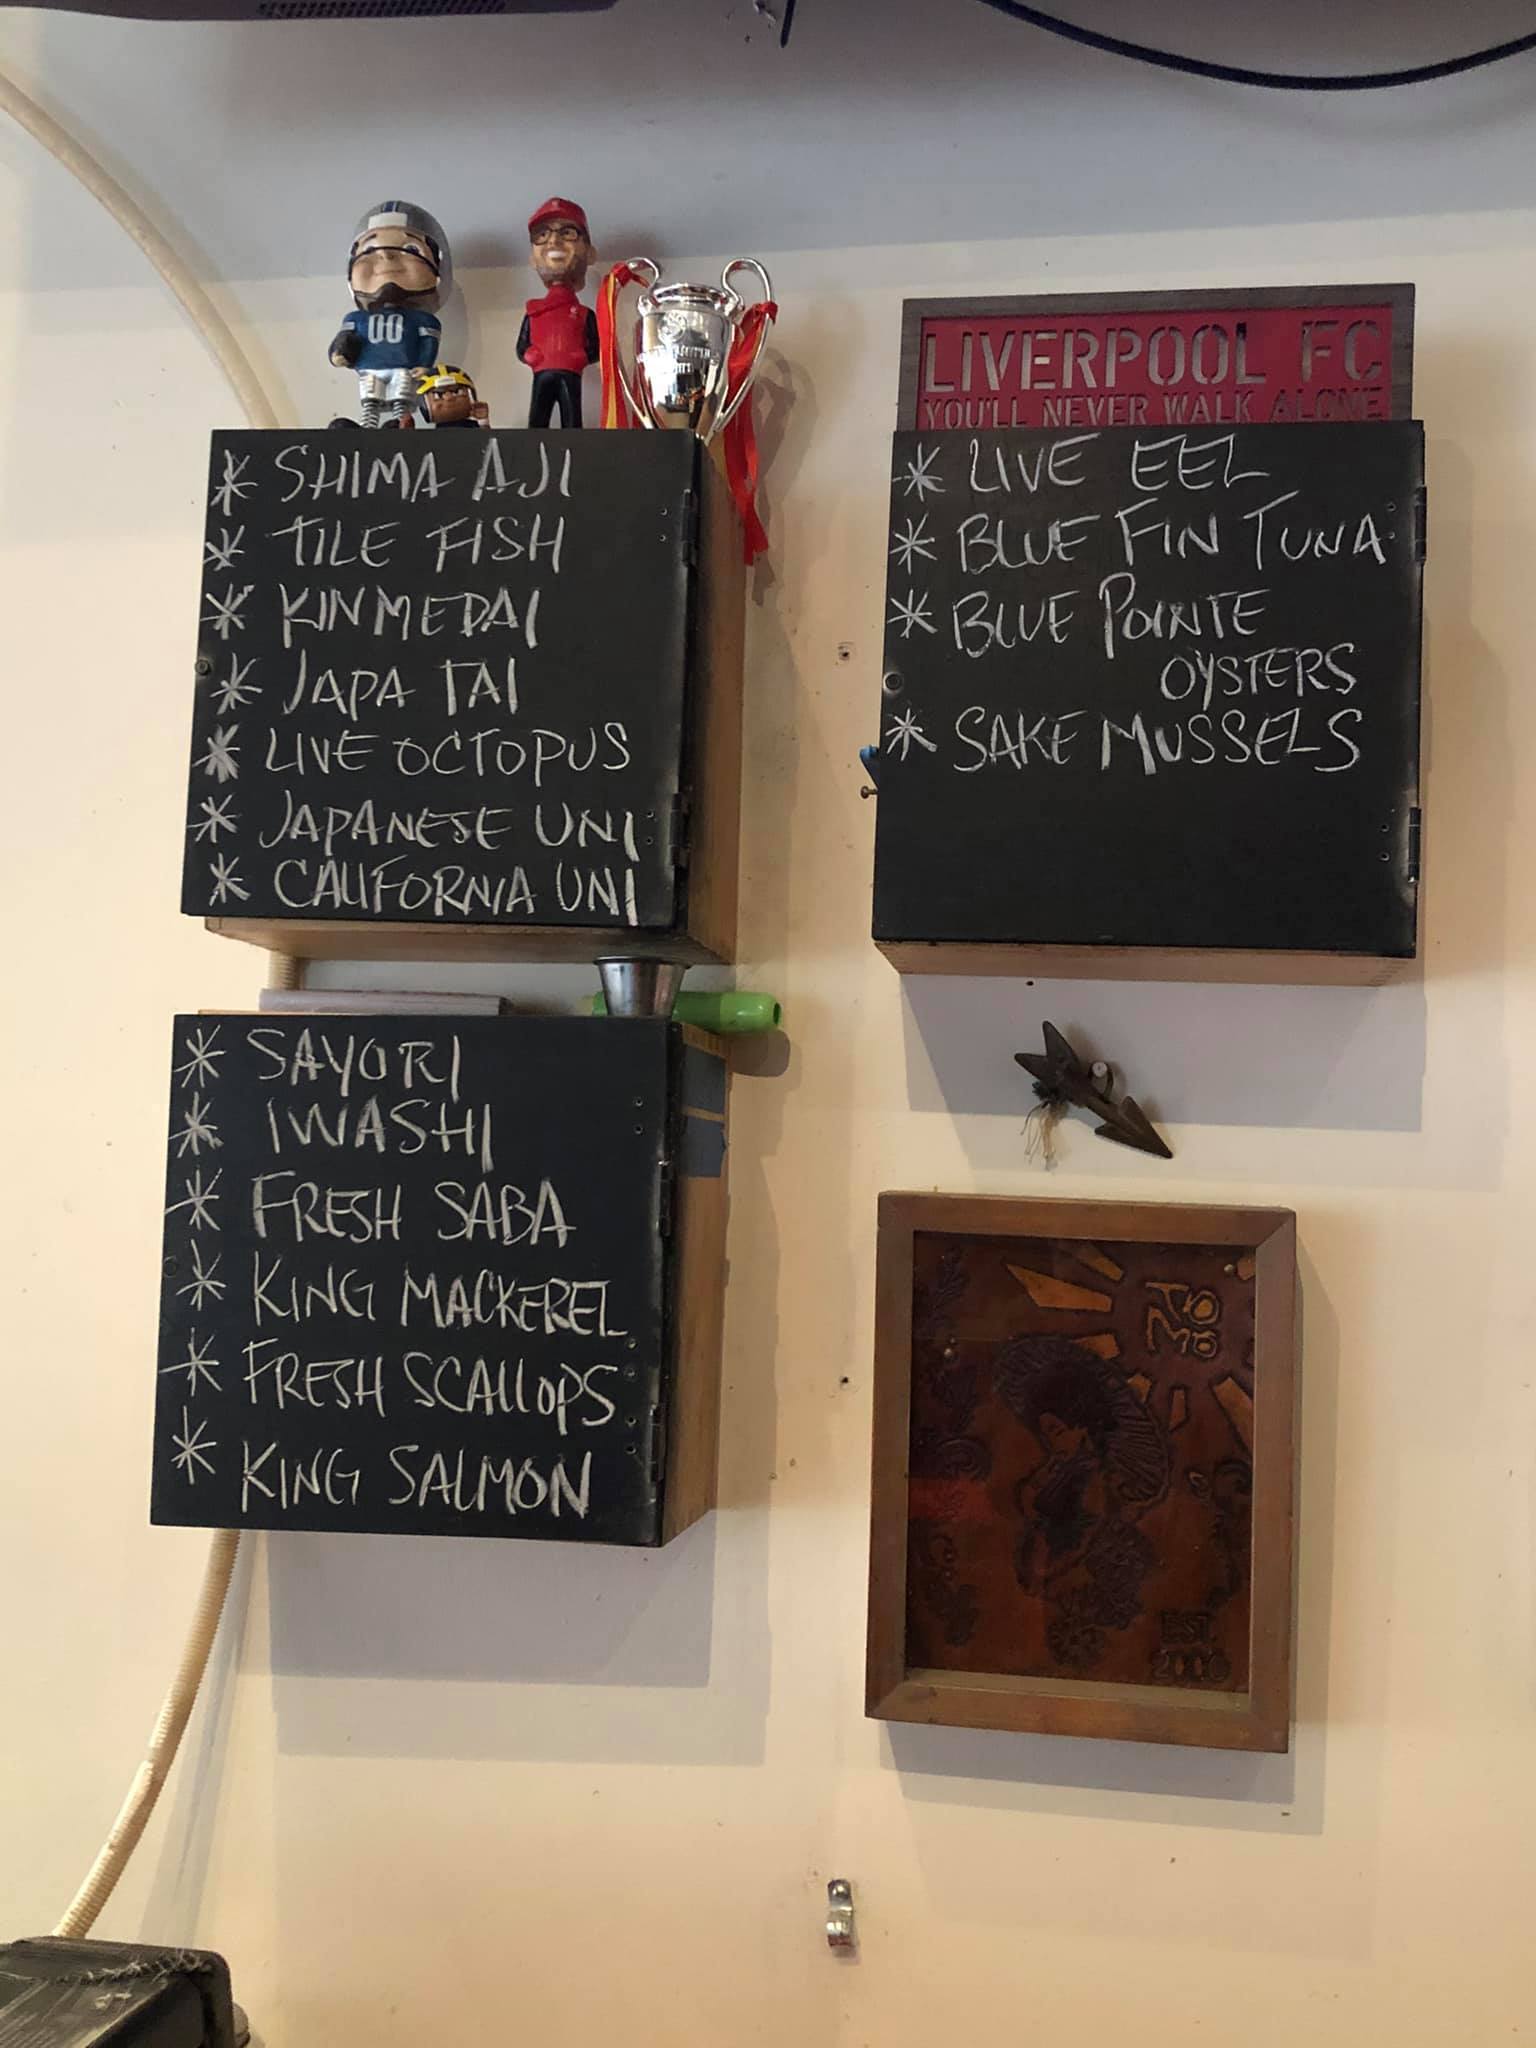 00
LIVERPOOL FC
YOU'LL NEVER WALK ALONE
* SHIMA AJI
* TILE FISH
* KINMEDAI
* JAPA TAI
* LIVE OCTOPUS
* JAPANESE UNI
* CALIFORNIA UNI
* LIVE EEL
* BLUE FIN TUNA
* BLUE POINTE
OYSTERS
* SAKE MUSSELS
* SAYORI
* IWASHI
* FRESH SABA
* KING MACKEREL
* FRESH SCALLOPS
* KING SALMON
EST.
2000